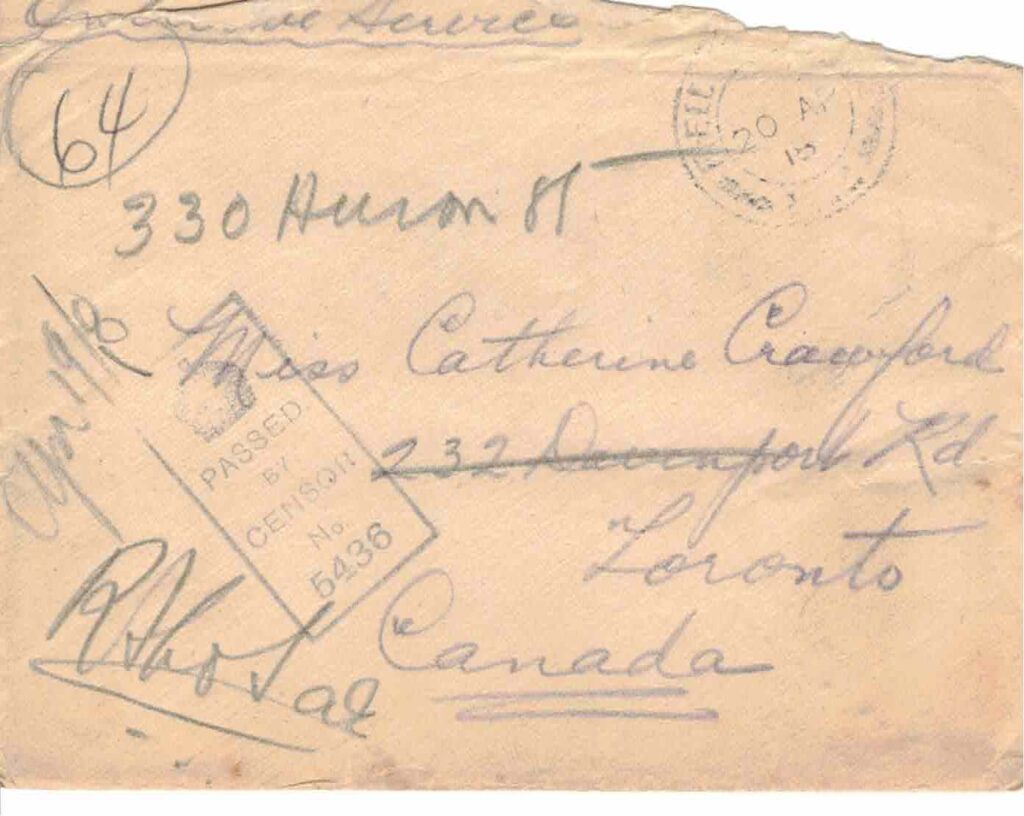 Service
64
20 AP
18
330 Huron St
Apr 19/18
Miss Catherine Crawford
232 Davenport Rd.
Toronto
Canada
PASSED
BY
CENSOR
No.
5436